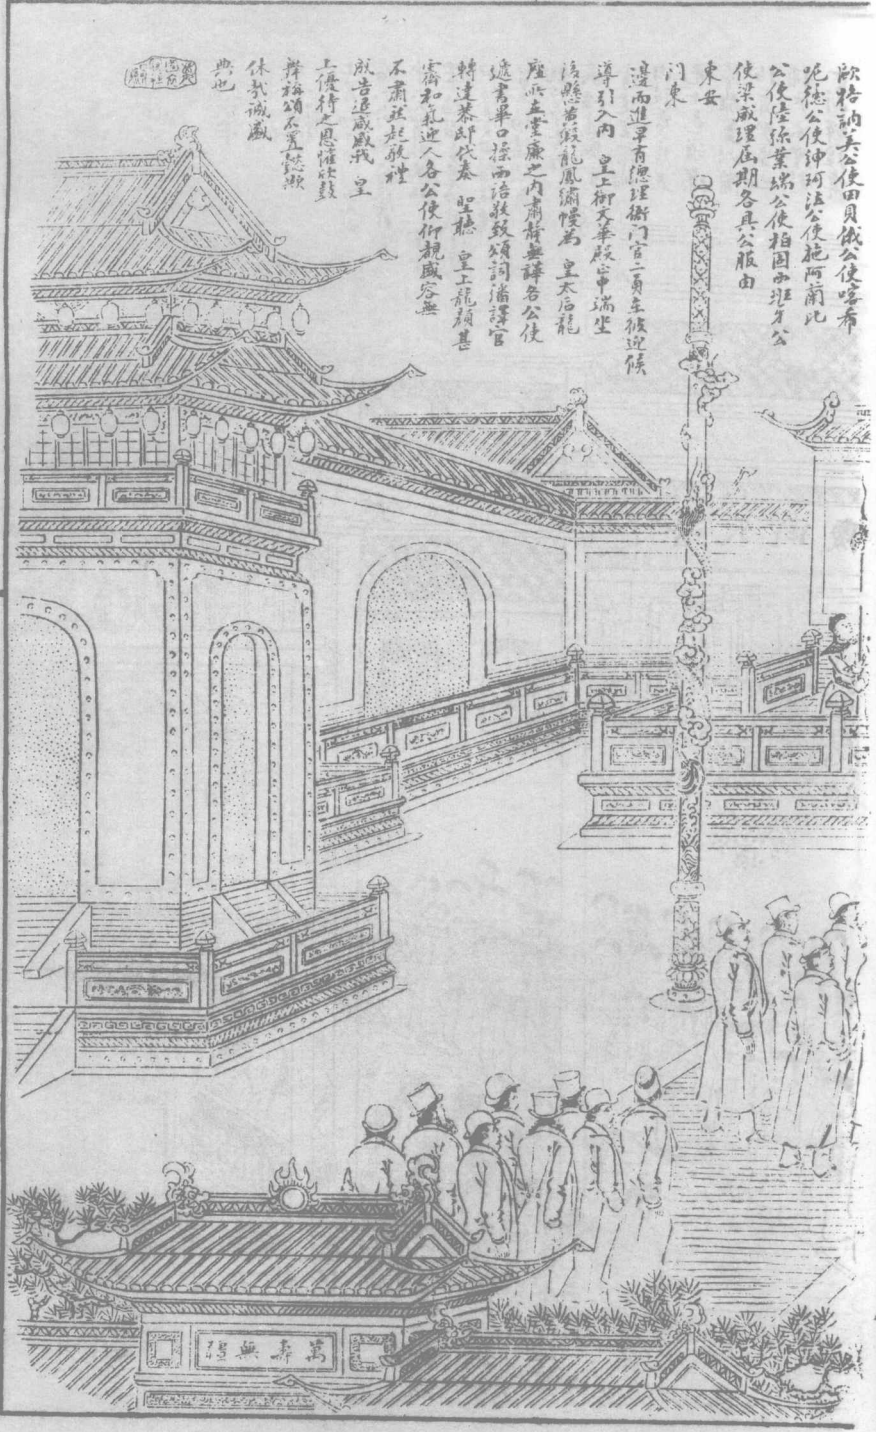 歐格訥美公使田貝俄公使喀希
呢德公使紳珂法公使施阿蘭比
公使陸彌業瑞公使柏固日班牙公
使梁威理屆期各具公服由
東安
門東
邊而進早有總理衙門官二員在彼迎候
導引入內 皇上御文華殿正中端坐
後懸岩龍鳳繡幔為 皇太后龍
座所立堂廉之內肅靜無譁各公使
遞書畢口操西語敬致頌詞繙譯官
轉達恭邸代奏 聖聽 皇上龍顏甚
霽和氣迎人各公使仰觀威容無
不肅然起敬禮
成告退咸感我 皇
上優待之恩懽欣鼓
舞稱頌不置懿歟
休哉誠盛
典也
萬壽無疆